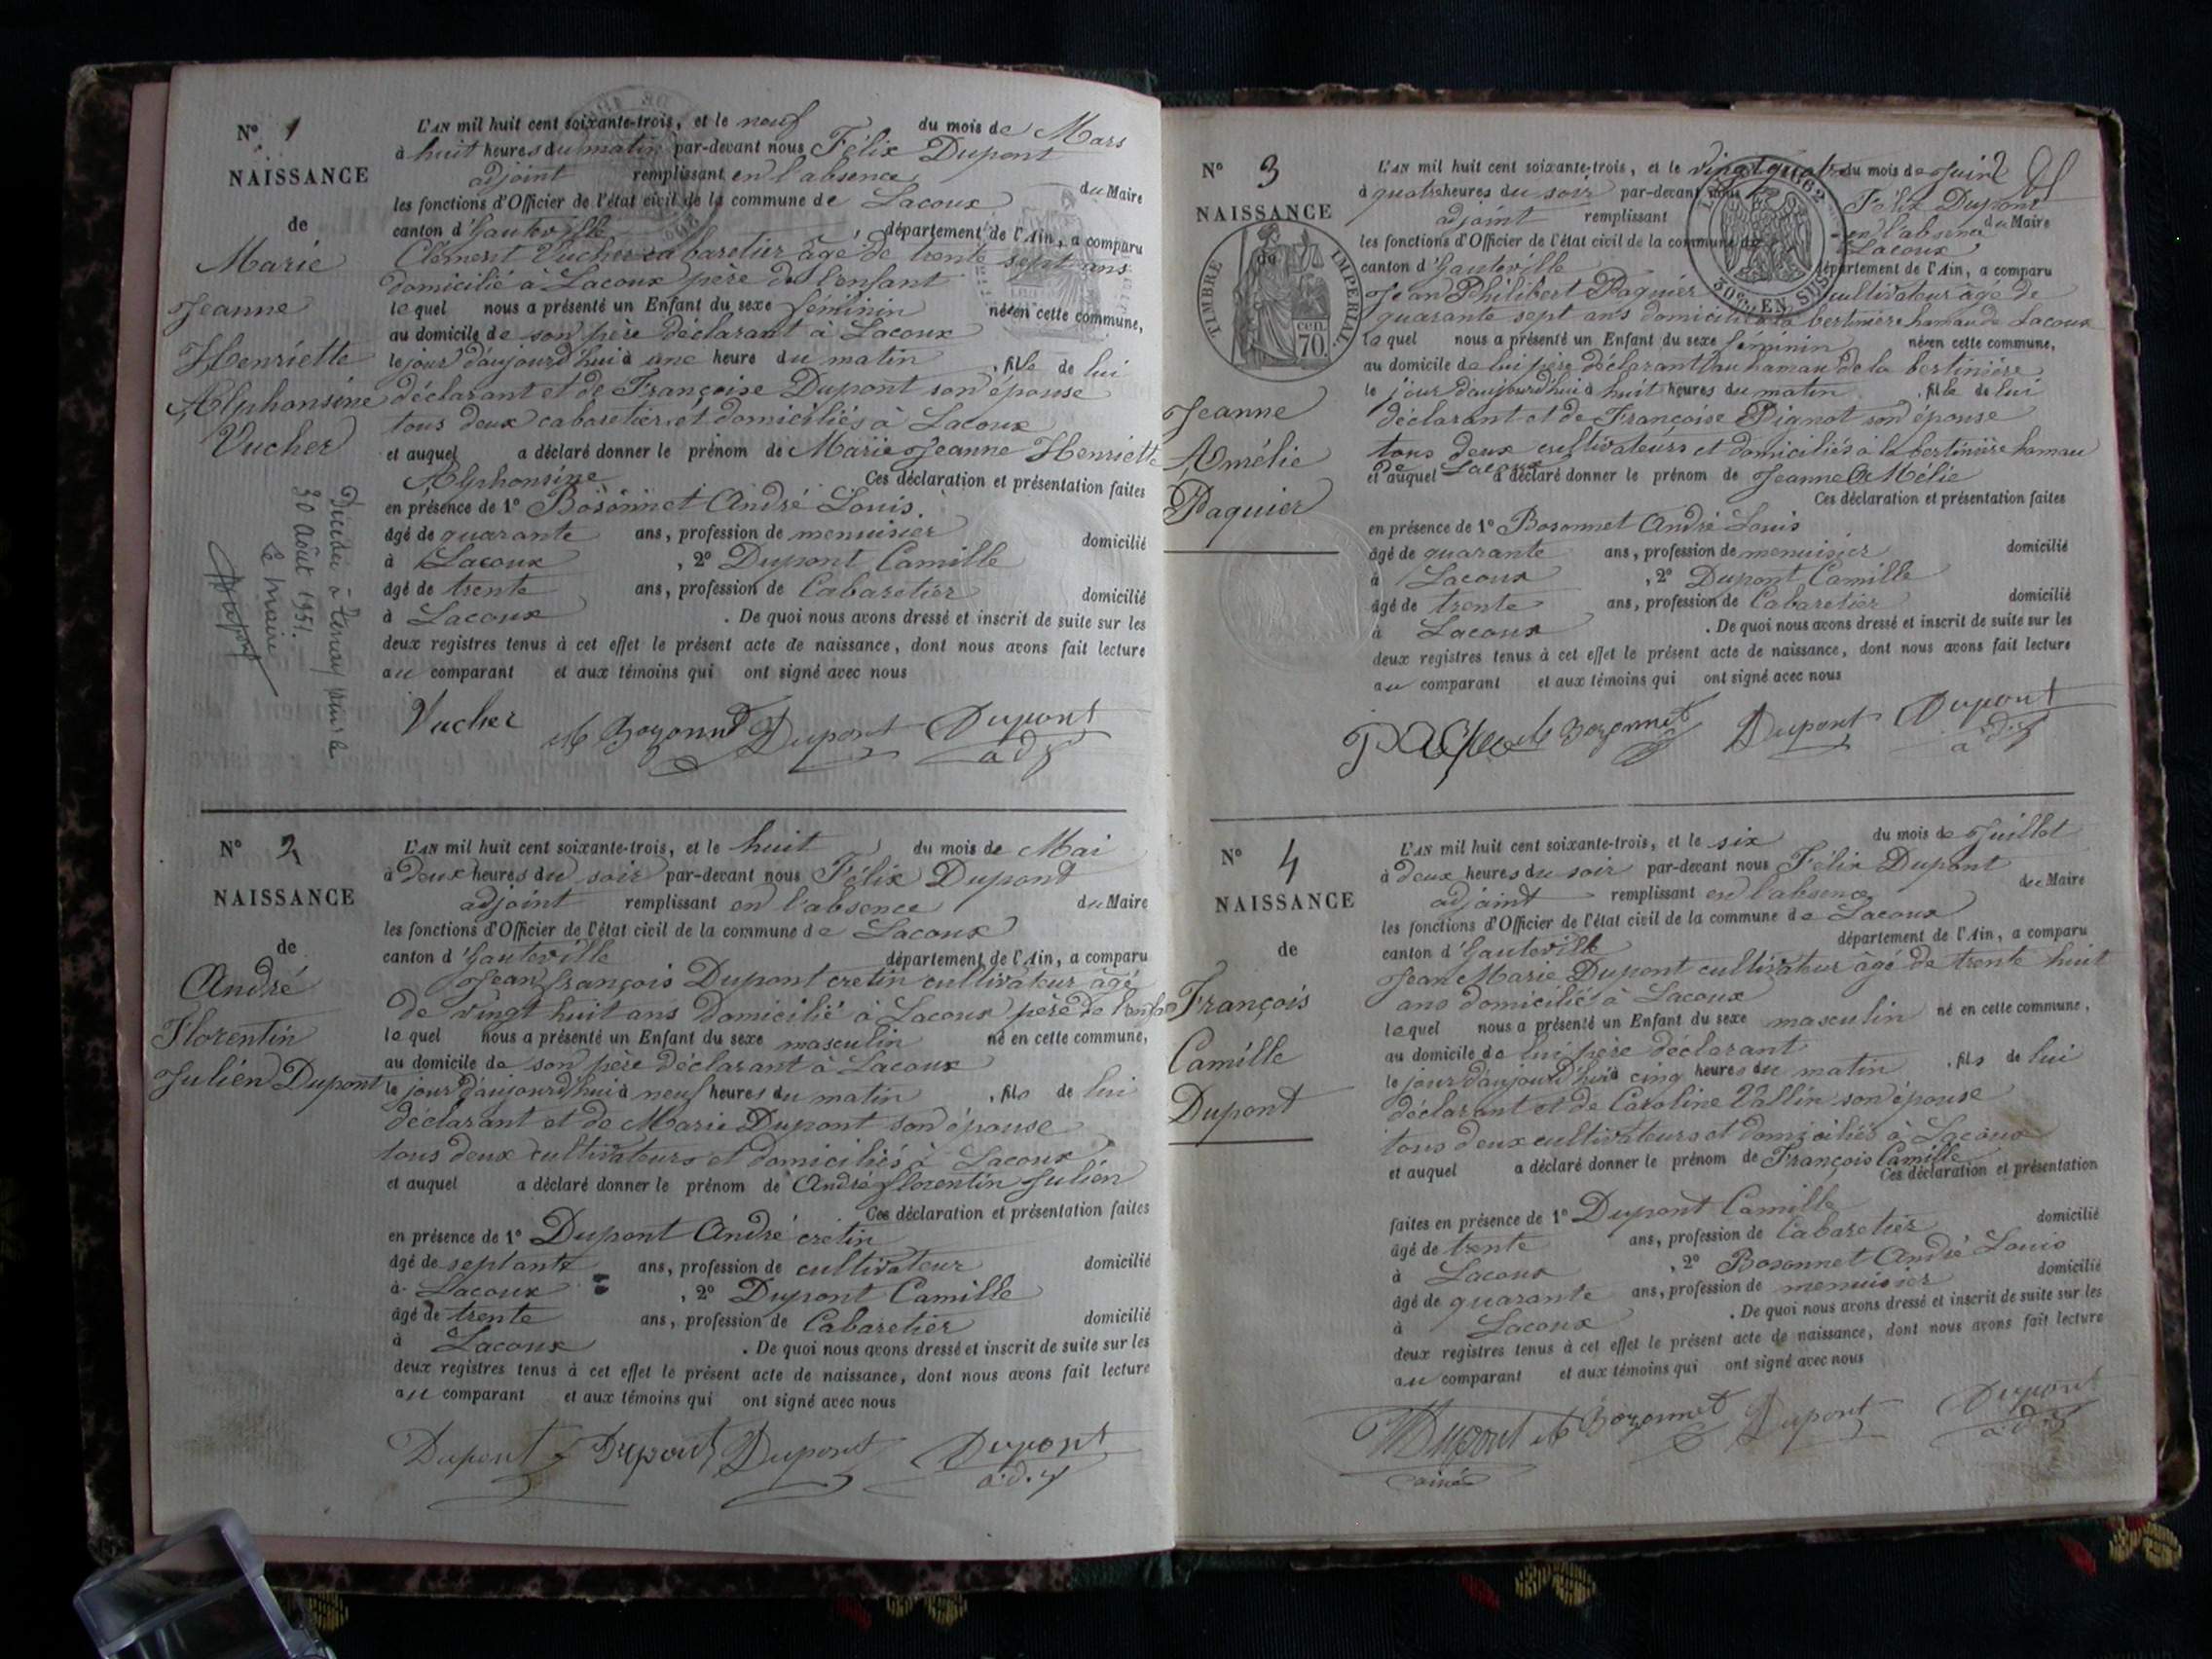 N° 1
NAISSANCE
de
Marie
Jeanne
Henriette
Alphonsine
Vucher
Décédée à
30 Août 1951.
Le Maire
L'AN mil huit cent soixante-trois, et le neuf du mois de Mars
à huit heures du matin par-devant nous Félix Dupont
adjoint remplissant en l'absence du Maire
les fonctions d'Officier de l'état civil de la commune de Lacoux
canton d'hauteville, département de l'Ain, a comparu
Clément Vucher cabaretier âgé de trente sept ans
domicilié à Lacoux père de l'enfant
lequel nous a présenté un Enfant du sexe féminin née en cette commune,
au domicile de son père déclarant à Lacoux
le jour d'aujourd'hui à une heure du matin, fille de lui
déclarant et de Françoise Dupont son épouse
tous deux cabaretiers et domiciliés à Lacoux
et auquel a déclaré donner le prénom de Marie Jeanne Henriette
Alphonsine Ces déclaration et présentation faites
en présence de 1° Bosonnet André Louis.
âgé de quarante ans, profession de menuisier domicilié
à Lacoux, 2° Dupont Camille
âgé de trente ans, profession de Cabaretier domicilié
à Lacoux. De quoi nous avons dressé et inscrit de suite sur les
deux registres tenus à cet effet le présent acte de naissance, dont nous avons fait lecture
au comparant et aux témoins qui ont signé avec nous
Vucher Bozonnet Dupont Dupont
adj
N° 2
NAISSANCE
de
André
Florentin
Julien Dupont
L'AN mil huit cent soixante-trois, et le huit du mois de Mai
à deux heures du soir par-devant nous Félix Dupont
adjoint remplissant en l'absence du Maire
les fonctions d'Officier de l'état civil de la commune de Lacoux
canton d'hauteville département de l'Ain, a comparu
Jean françois Dupont cretin cultivateur âgé
de vingt huit ans domicilié à Lacoux père de l'enfant
lequel nous a présenté un Enfant du sexe masculin né en cette commune,
au domicile de son père déclarant à Lacoux
le jour d'aujourd'hui à neuf heures du matin, fils de lui
déclarant et de Marie Dupont son épouse
tous deux cultivateurs et domiciliés à Lacoux
et auquel a déclaré donner le prénom de André florentin Julien
Ces déclaration et présentation faites
en présence de 1° Dupont André cretin
âgé de septante ans, profession de cultivateur domicilié
à Lacoux, 2° Dupont Camille
âgé de trente ans, profession de Cabaretier domicilié
à Lacoux. De quoi nous avons dressé et inscrit de suite sur les
deux registres tenus à cet effet le présent acte de naissance, dont nous avons fait lecture
au comparant et aux témoins qui ont signé avec nous
Dupont Dupont Dupont Dupont
adj
N° 3
NAISSANCE
de
TIMBRE IMPERIAL
cen 70.
Jeanne
Amélie
Paquier
1862
50c. EN SUS
L'AN mil huit cent soixante-trois, et le vingt quatre du mois de Juin
à quatre heures du soir par-devant nous Félix Dupont
adjoint remplissant en l'absence du Maire
les fonctions d'Officier de l'état civil de la commune de Lacoux
canton d'hauteville département de l'Ain, a comparu
Jean Philibert Paquier cultivateur âgé de
quarante sept ans domicilié à la bertinière hameau de Lacoux
lequel nous a présenté un Enfant du sexe féminin née en cette commune,
au domicile de lui père déclarant au hameau de la bertinière
le jour d'aujourd'hui à huit heures du matin, fille de lui
déclarant et de Françoise Pignot son épouse
tous deux cultivateurs et domiciliés à la bertinière hameau
de Lacoux
et auquel a déclaré donner le prénom de Jeanne Amélie
Ces déclaration et présentation faites
en présence de 1° Bosonnet André Louis
âgé de quarante ans, profession de menuisier domicilié
à Lacoux, 2° Dupont Camille
âgé de trente ans, profession de Cabaretier domicilié
à Lacoux. De quoi nous avons dressé et inscrit de suite sur les
deux registres tenus à cet effet le présent acte de naissance, dont nous avons fait lecture
au comparant et aux témoins qui ont signé avec nous
Bozonnet Dupont Dupont
adj
N° 4
NAISSANCE
de
François
Camille
Dupont
L'AN mil huit cent soixante-trois, et le six du mois de Juillet
à deux heures du soir par-devant nous Félix Dupont
adjoint remplissant en l'absence du Maire
les fonctions d'Officier de l'état civil de la commune de Lacoux
canton d'hauteville département de l'Ain, a comparu
Jean Marie Dupont cultivateur âgé de trente huit
ans domiciliés à Lacoux
lequel nous a présenté un Enfant du sexe masculin né en cette commune,
au domicile de lui père déclarant
le jour d'aujourd'hui à cinq heures du matin, fils de lui
déclarant et de Caroline Vallin son épouse
tous deux cultivateurs et domiciliés à Lacoux
et auquel a déclaré donner le prénom de François Camille
Ces déclaration et présentation
faites en présence de 1° Dupont Camille
âgé de trente ans, profession de Cabaretier domicilié
à Lacoux, 2° Bosonnet André Louis
âgé de quarante ans, profession de menuisier domicilié
à Lacoux. De quoi nous avons dressé et inscrit de suite sur les
deux registres tenus à cet effet le présent acte de naissance, dont nous avons fait lecture
au comparant et aux témoins qui ont signé avec nous
Dupont Bozonnet Dupont Dupont
ainé adj